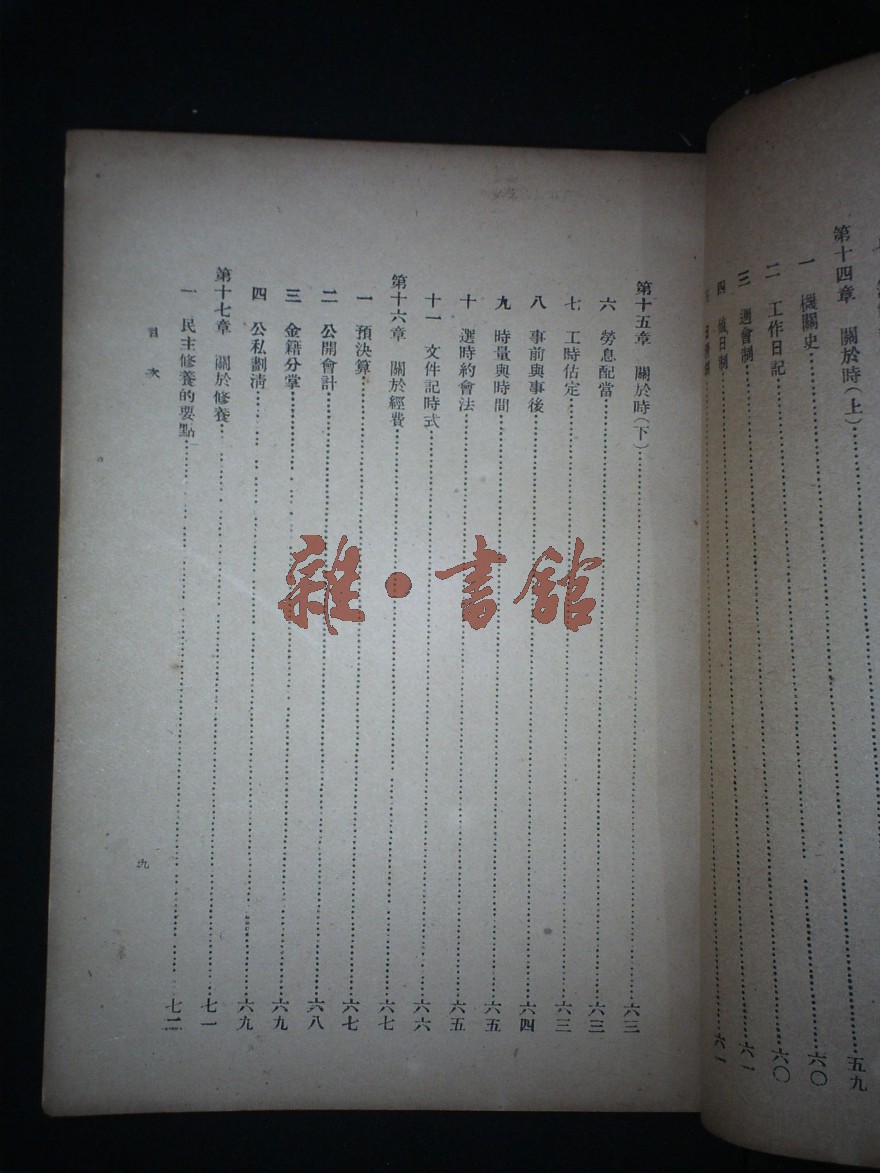 第十四章　關於時（上）……五九
一　機關史……六〇
二　工作日記……六〇
三　週會制……六一
四　值日制……六一
第十五章　關於時（下）……六三
六　勞息配當……六三
七　工時估定……六三
八　事前與事後……六四
九　時量與時間……六五
十　選時約會法……六五
十一　文件記時式……六六
第十六章　關於經費……六七
一　預決算……六七
二　公開會計……六八
三　金籍分掌……六九
四　公私劃清……六九
第十七章　關於修養……七一
一　民主修養的要點……七二
目次
九
雜·書館